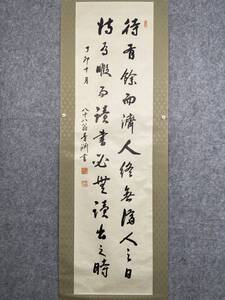 待有餘而濟人終無濟人之日
待有暇而讀書必無讀書之時
丁卯十月
八十八翁